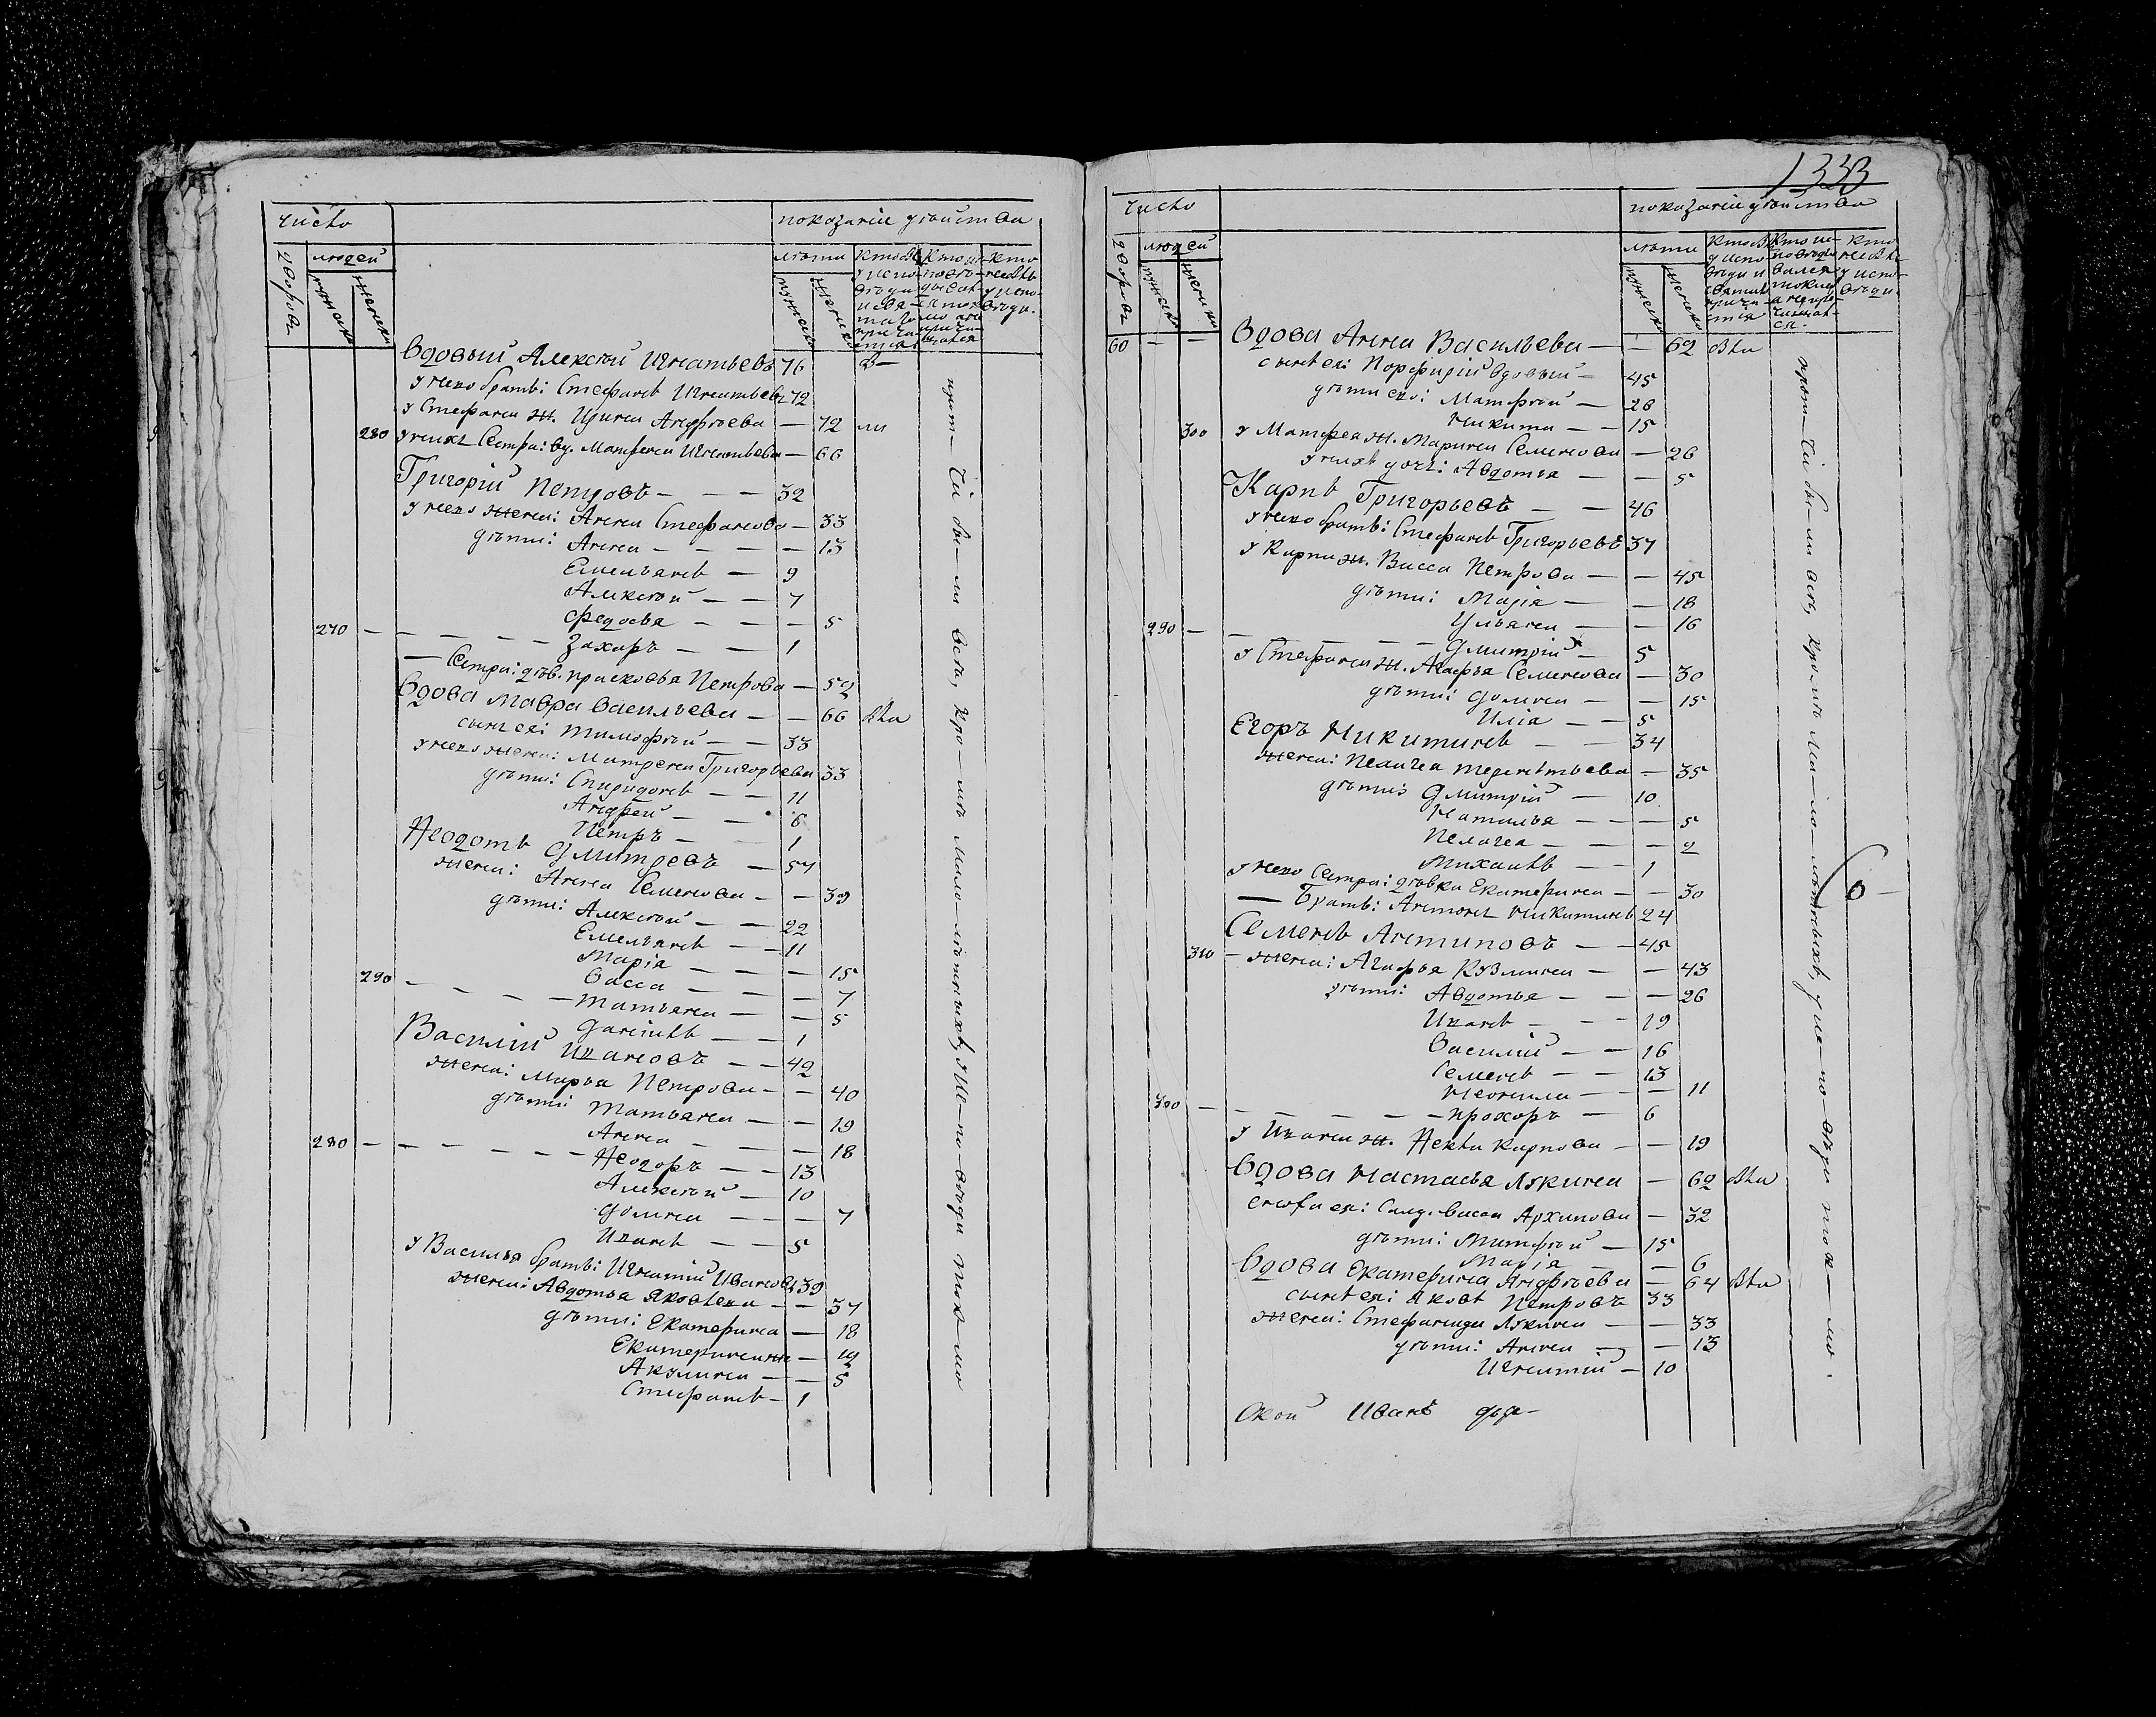 число
показание действа
дворовъ
людей
мужеска
женска
лѣта
мужеска
женска
кто былъ у исповѣди и святаго причастія
кто исповѣдался токмо а не причастился
кто не былъ у исповѣди.
Вдовый Алексѣй Игнатьевъ 76 б—
у него братъ: Стефанъ Игнатьевъ 72
у Стефана ж. Ирина Андрѣева — 72 ли
280 у нихъ Сестра: вд. Матрена Игнатьева — 66
Григорій Петровъ — — — 32
у него жена: Анна Стефанова — 33
дѣти: Анна — — — — 13
Емельянъ — 9
Алексѣй — — 7
Федосья — — — 5
270 — — — — — Захаръ — — 1
— Сестра: дѣв. Прасковья Петрова — 52
Вдова Мавра Васильева — — 66 Были
сынъ ея: Тимофѣй — — 33
у него жена: Матрена Григорьева 33
дѣти: Спиридонъ — — 11
Андрей — — 6
Петръ — — 1
Ѳеодотъ Дмитревъ — 57
жена: Анна Семенова — — 39
дѣти: Алексѣй — — 22
Емельянъ — — 11
Марія — — — 15
290 Васса — — — 7
— — — — Татьяна — — 5
Даніилъ — — 1
Василій Ивановъ — — 42
жена: Марья Петрова — — 40
дѣти: Татьяна — — 19
Анна — — — 18
280 — — — — — — Ѳеодоръ — — 13
Алексѣй — 10
Домна — — — 7
Иванъ — — 5
у Василья братъ: Игнатій Ивановъ 39
жена: Авдотья Яковлева — — 37
дѣти: Екатерина — 18
Екатерина же — 12
Акулина — — 5
Стефанъ — 1
1333
число
показание действа
дворовъ
людей
мужеска
женска
лѣта
мужеска
женска
60 — — Вдова Анна Васильева — — 62 Были
сынъ ея: Порфирій вдовый — 45
дѣти его: Матфѣй — 26
Никита — — 15
300 у Матфея ж. Марина Семенова — 26
у нихъ дочь: Авдотья — — 5
Карпъ Григорьевъ — — 46
у него братъ: Стефанъ Григорьевъ 37
у Карпа ж. Васса Петрова — — 45
дѣти: Марія — — 18
Ульяна — — 16
290 — — — — — — Дмитрій — 5
у Стефана ж. Агафья Семенова — 30
дѣти: Домна — — 15
Илія — — 5
Егоръ Никитинъ — — 34
жена: Пелагея Терентьева — 35
дѣти: Дмитрій — 10
Наталья — — — 5
Пелагея — — — 2
Михаилъ — — 1
у него Сестра: дѣвка Екатерина — — 30
— Братъ: Антонъ Никитинъ 24
Семенъ Антиповъ — — 45
310 — жена: Агафья Кузмина — — 43
дѣти: Авдотья — — — 26
Иванъ — — — 19
Василій — — 16
Семенъ — — 13
Неонила — — — 11
300 — — — — — — Прохоръ — 6
у Ивана ж. Ѳекла Карпова — — 19
Вдова Настасья Лукина — 62 Были
сноха ея: Салд. Васса Архипова — 32
дѣти: Тимофѣй — 15
Марія — — 6
Вдова Екатерина Андрѣева — 64 Были
сынъ ея: Яковъ Петровъ 33
жена: Стефанида Лукина — — 33
дѣти: Анна — — 13
Игнатій — 10